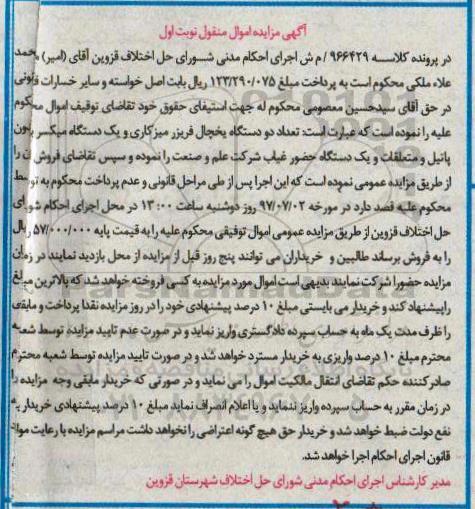 آگهی مزایده اموال منقول نوبت اول
در پرونده کلاسه ۹۶۶۴۲۹ / م ش اجرای احکام مدنی شورای حل اختلاف قزوین آقای (امیر) محمد
علاء ملکی محکوم است به پرداخت مبلغ ۱۲۳/۲۹۰/۰۷۵ ریال بابت اصل خواسته و سایر خسارات قانونی
در حق آقای سیدحسین معصومی محکوم له جهت استیفای حقوق خود تقاضای توقیف اموال محکوم
علیه را نموده است که عبارت است: تعداد دو دستگاه یخچال فریزر میزکاری و یک دستگاه میکسر بدون
پاتیل و متعلقات و یک دستگاه حضور غیاب شرکت علم و صنعت را نموده و سپس تقاضای فروش آن را
از طریق مزایده عمومی نموده است که این اجرا پس از طی مراحل قانونی و عدم پرداخت محکوم به توسط
محکوم علیه قصد دارد در مورخه ۹۷/۰۷/۰۲ روز دوشنبه ساعت ۱۳:۰۰ در محل اجرای احکام شورای
حل اختلاف قزوین از طریق مزایده عمومی اموال توقیفی محکوم علیه را به قیمت پایه ۵۷/۰۰۰/۰۰۰ ریال
را به فروش برساند طالبین و خریداران می توانند پنج روز قبل از مزایده از محل بازدید نمایند در زمان
مزایده حضورا شرکت نمایند بدیهی است اموال مورد مزایده به کسی فروخته خواهد شد که بالاترین مبلغ
را پیشنهاد کند و خریدار می بایستی مبلغ ۱۰ درصد پیشنهادی خود را در روز مزایده نقدا پرداخت و مابقی
را ظرف مدت یک ماه به حساب سپرده دادگستری واریز نماید و در صورت عدم تایید مزایده توسط شعبه
محترم مبلغ ۱۰ درصد واریزی به خریدار مسترد خواهد شد و در صورت تایید مزایده توسط شعبه محترم
صادر کننده حکم تقاضای انتقال مالکیت اموال را می نماید و در صورتی که خریدار مابقی وجه مزایده را
در زمان مقرر به حساب سپرده واریز ننماید و یا اعلام انصراف نماید مبلغ ۱۰ درصد پیشنهادی خریدار به
نفع دولت ضبط خواهد شد و خریدار حق هیچ گونه اعتراضی را نخواهد داشت مراسم مزایده با رعایت مواد
قانون اجرای احکام اجرا خواهد شد.
مدیر کارشناس اجرای احکام مدنی شورای حل اختلاف شهرستان قزوین